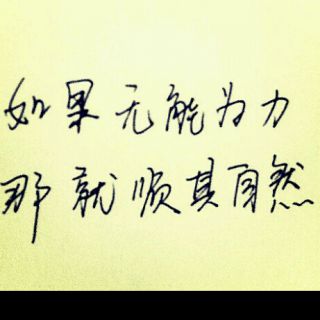 如果无能为力
那就顺其自然